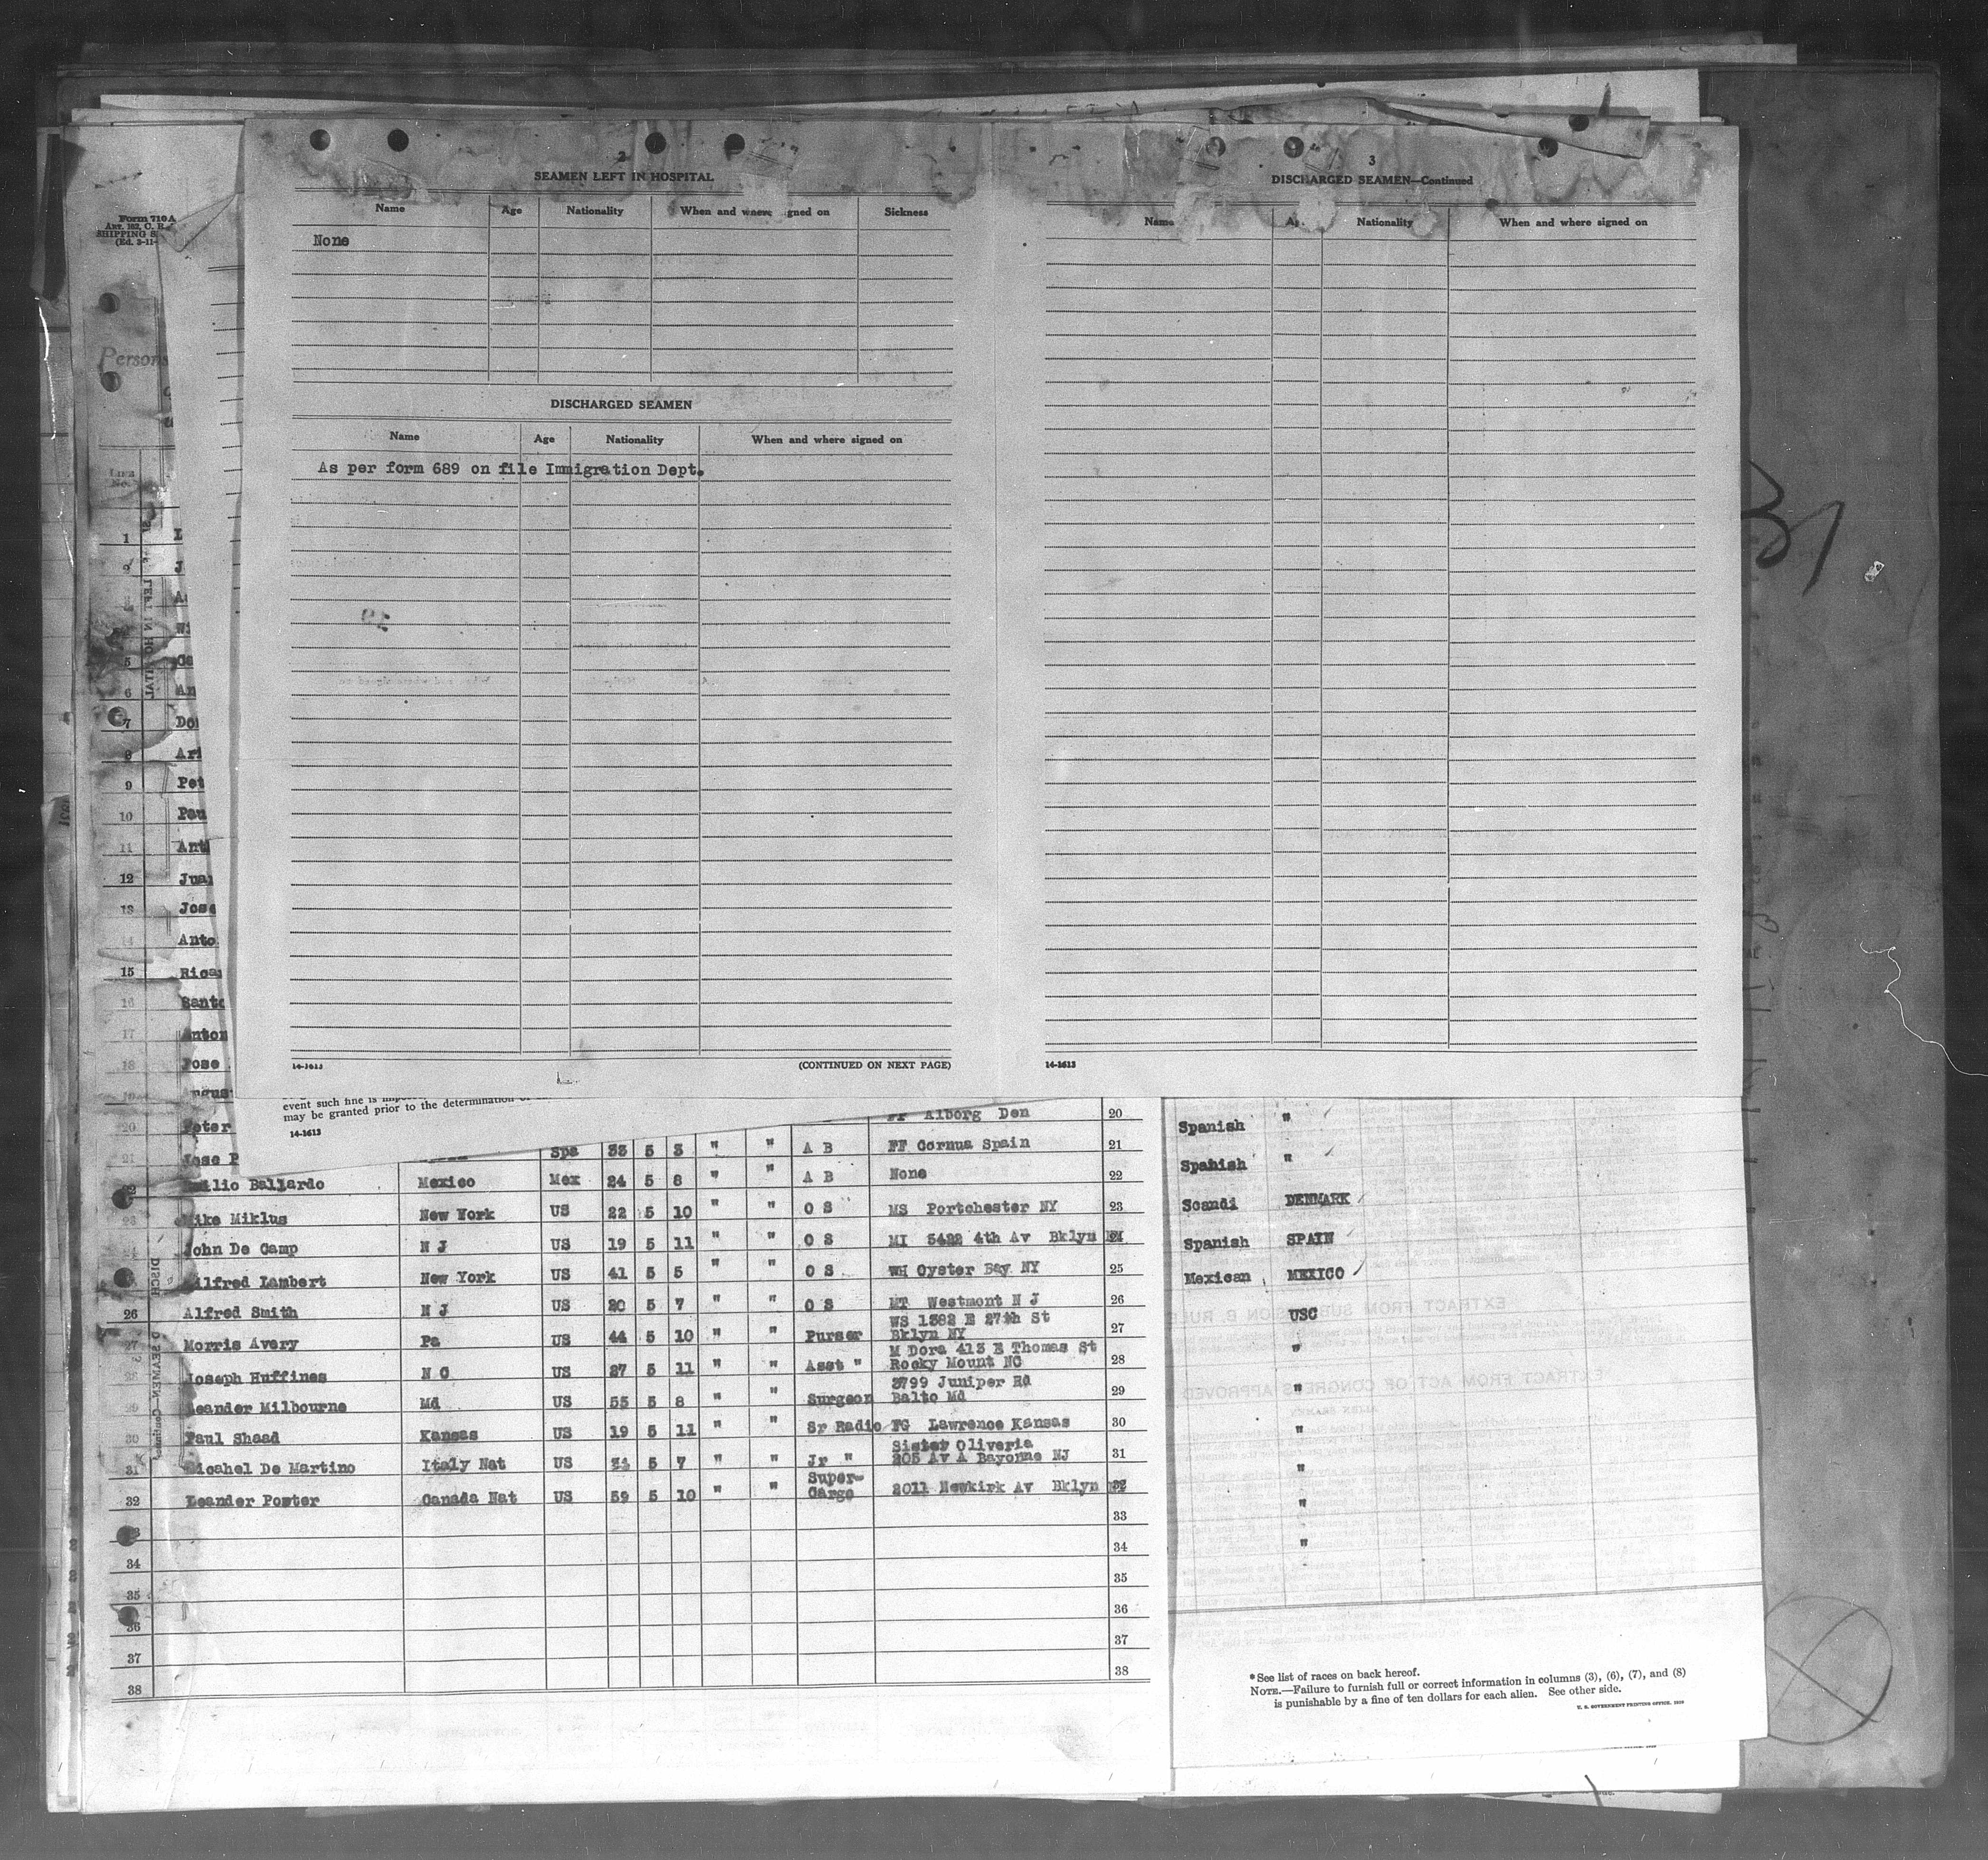 2
SEAMEN LEFT IN HOSPITAL
Name Age Nationality When and where signed on Sickness
None
DISCHARGED SEAMEN
Name Age Nationality When and where signed on
As per form 689 on file Immigration Dept.
14-1613 (CONTINUED ON NEXT PAGE)
3
DISCHARGED SEAMEN—Continued
Name Nationality When and where signed on
14-1613
Form 710A
(Ed. 3-11-
Persons
1
5
6
7 Do
8 Ari
9 Pet
10 Pau
11 Ant
12 Jua
13 Jose
14 Anto
15 Rica
16 Santo
17 Anton
18 Jose
19
20 Peter
event such fine is
may be granted prior to the determination
14-1613
Alborg Den 20
21 Jose P Spa 33 5 3 " " A B FF Cornua Spain 21
Emilio Ballardo Mexico Mex 24 5 8 " " A B None 22
23 Mike Miklus New York US 22 5 10 " " O S MS Portchester NY 23
John De Camp N J US 19 5 11 " " O S MI 5422 4th Av Bklyn
Wilfred Lambert New York US 41 5 5 " " O S WH Oyster Bay NY 25
26 Alfred Smith N J US 20 5 7 " " O S MT Westmont N J 26
WS 1382 E 27th St
27 Morris Avery Pa US 44 5 10 " " Purser Bklyn NY 27
M Dora 413 E Thomas St
28 Joseph Huffines N C US 27 5 11 " " Asst " Rocky Mount NC 28
3799 Juniper Rd
29 Leander Milbourne Md US 55 5 8 " " Surgeon Balto Md 29
30 Paul Shaad Kansas US 19 5 11 " " Sr Radio FG Lawrence Kansas 30
Sister Oliveria
31 Micahel De Martino Italy Nat US 5 7 " " Jr " 205 Av A Bayonne NJ 31
Super-
32 Leander Porter Canada Nat US 59 5 10 " " Cargo 2011 Newkirk Av Bklyn
33
34 34
35 35
36 36
37 37
38 38
Spanish "
Spanish "
Scandi DENMARK
Spanish SPAIN
Mexican MEXICO
USC
"
"
"
"
"
"
*See list of races on back hereof.
NOTE.—Failure to furnish full or correct information in columns (3), (6), (7), and (8)
is punishable by a fine of ten dollars for each alien. See other side.